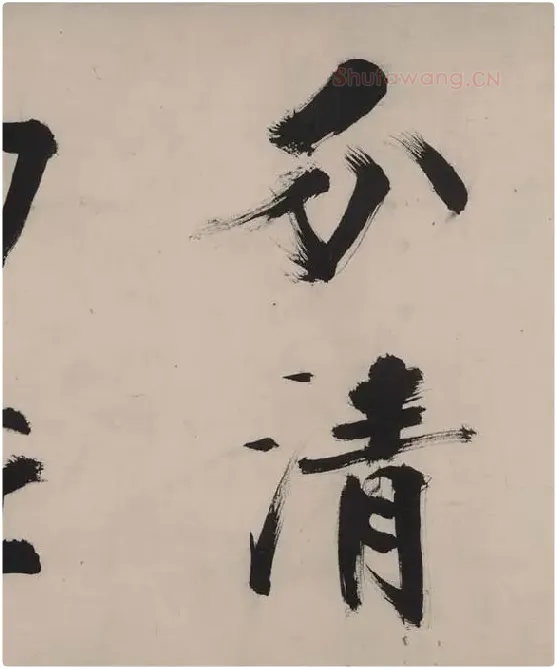 Shufawang.CN
分清